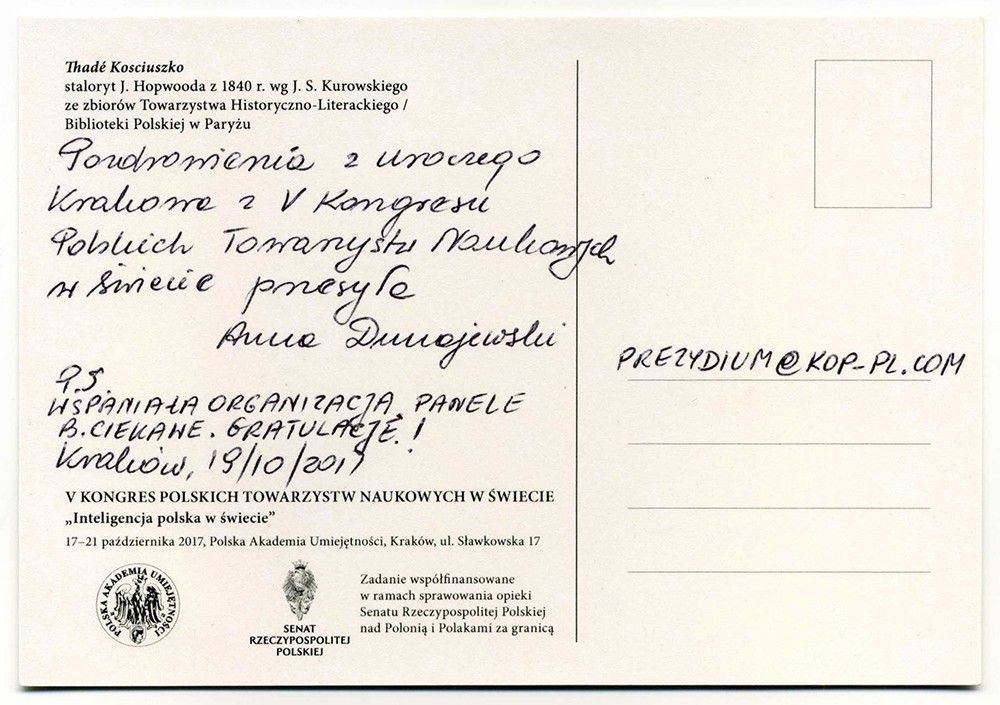 Thadé Kosciuszko
staloryt J. Hopwooda z 1840 r. wg J. S. Kurowskiego
ze zbiorów Towarzystwa Historyczno-Literackiego /
Biblioteki Polskiej w Paryżu
Pozdrowienia z uroczego
Krakowa z V Kongresu
Polskich Towarzystw Naukowych
w świecie przesyła
Anna Dunajewski
P.S.
WSPANIAŁA ORGANIZACJA, PANELE
B. CIEKAWE. GRATULACJE!
Kraków, 19/10/2017
V KONGRES POLSKICH TOWARZYSTW NAUKOWYCH W ŚWIECIE
„Inteligencja polska w świecie”
17–21 października 2017, Polska Akademia Umiejętności, Kraków, ul. Sławkowska 17
POLSKA AKADEMIA UMIEJĘTNOŚCI
SENAT
RZECZYPOSPOLITEJ
POLSKIEJ
Zadanie współfinansowane
w ramach sprawowania opieki
Senatu Rzeczypospolitej Polskiej
nad Polonią i Polakami za granicą
PREZYDIUM@KOP-PL.COM